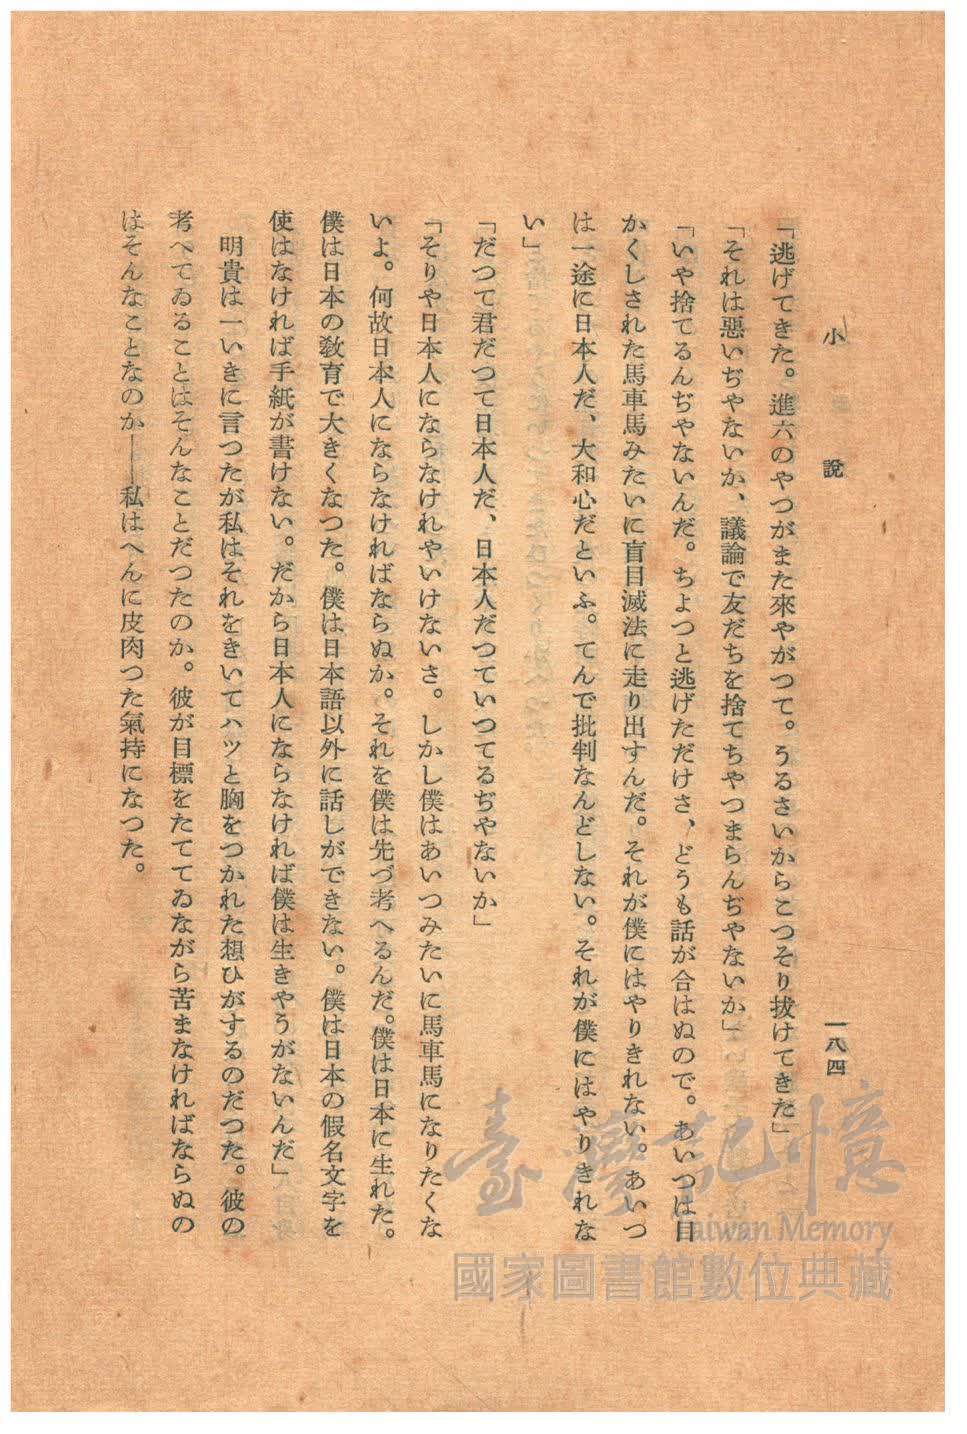 小說
一八四
「逃げてきた。進六のやつがまた來やがつて。うるさいからこつそり拔けてきた」
「それは惡いぢやないか、議論で友だちを捨てちやつまらんぢやないか」
「いや捨てるんぢやないんだ。ちよつと逃げただけさ、どうも話が合はぬので。あいつは目
かくしされた馬車馬みたいに盲目滅法に走り出すんだ。それが僕にはやりきれない。あいつ
は一途に日本人だ、大和心だといふ。てんで批判なんどしない。それが僕にはやりきれな
い」
「だつて君だつて日本人だ、日本人だつていつてるぢやないか」
「そりや日本人にならなけれやいけないさ。しかし僕はあいつみたいに馬車馬になりたくな
いよ。何故日本人にならなければならぬか。それを僕は先づ考へるんだ。僕は日本に生れた。
僕は日本の敎育で大きくなつた。僕は日本語以外に話しができない。僕は日本の假名文字を
使はなければ手紙が書けない。だから日本人にならなければ僕は生きやうがないんだ」
明貴は一いきに言つたが私はそれをきいてハツと胸をつかれた想ひがするのだつた。彼の
考へてゐることはそんなことだつたのか。彼が目標をたててゐながら苦まなければならぬの
はそんなことなのか――私はへんに皮肉つた氣持になつた。
臺灣記憶
Taiwan Memory
國家圖書館數位典藏